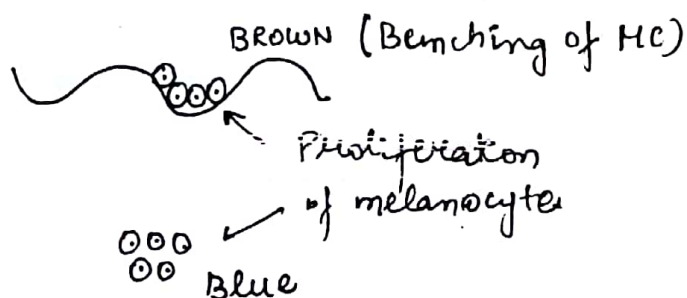 BROWN (Bunching of MC)
Proliferation
of melanocyte
Blue